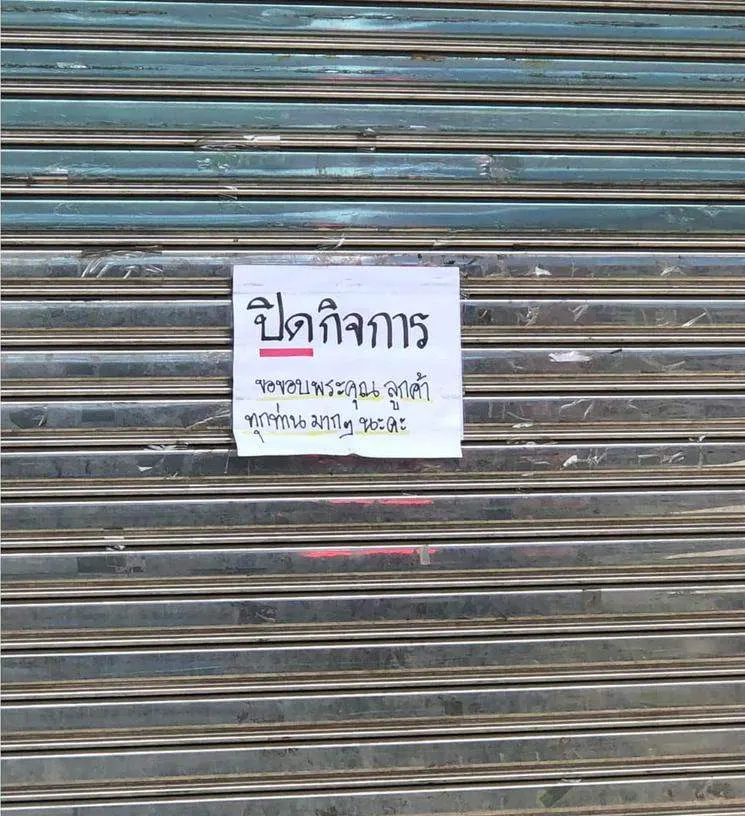 ปิดกิจการ
ขอขอบพระคุณ ลูกค้า
ทุกท่าน มากๆ นะคะ